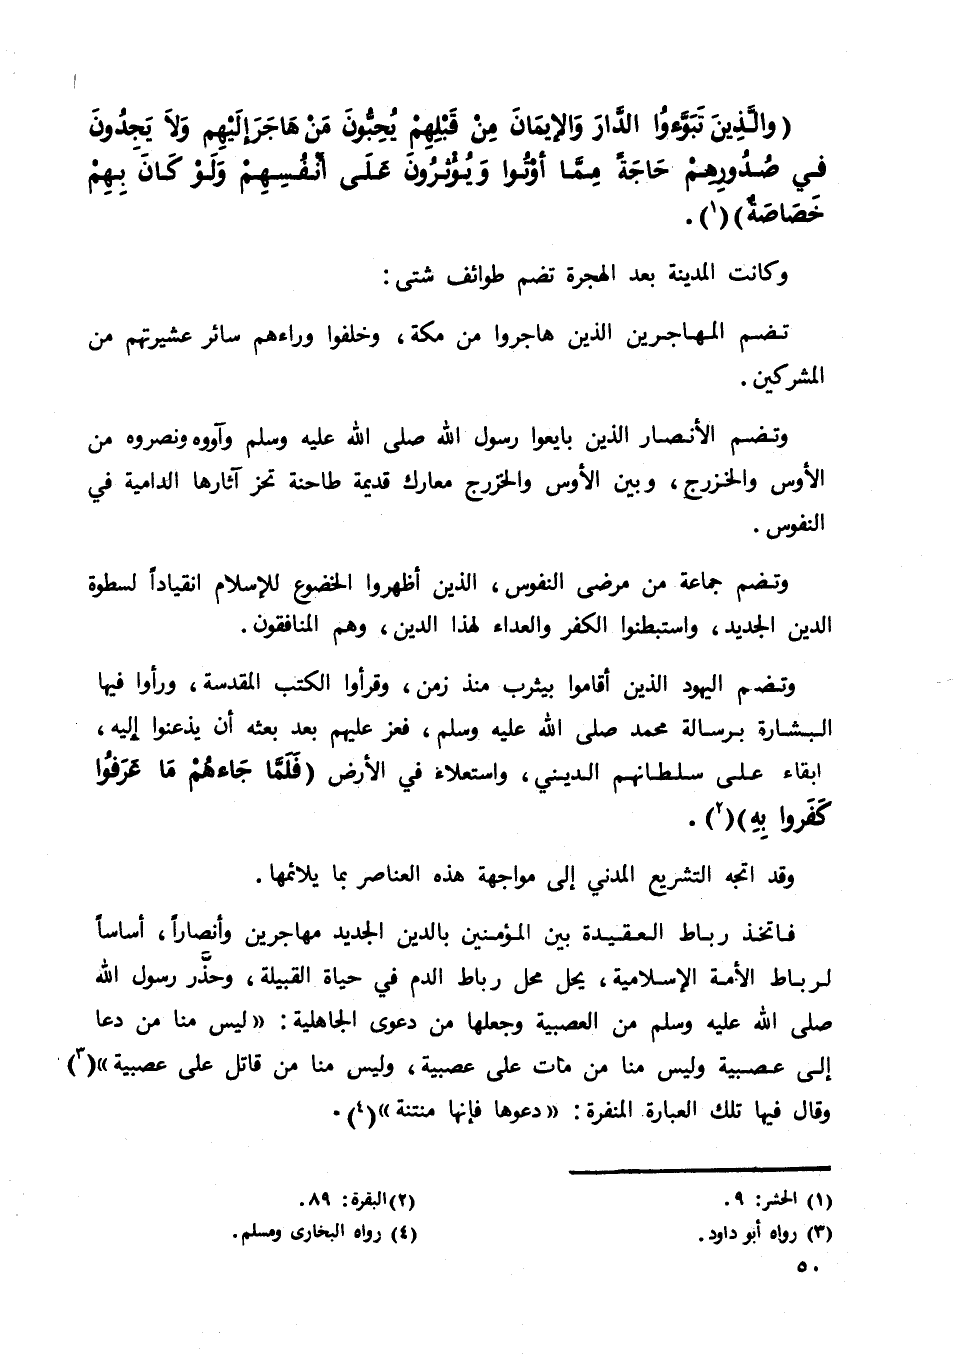 (والَّذِينَ تَبَوَّءُوا الدَّارَ وَالإِيمَانَ مِنْ قَبْلِهِمْ يُحِبُّونَ مَنْ هَاجَرَ إِلَيْهِم وَلاَ يَجِدُونَ
في صُدُورِهِمْ حَاجَةً مِمَّا أُوتُوا وَيُؤْثِرُونَ عَلَى أَنْفُسِهِمْ وَلَوْ كَانَ بِهِمْ
خَصَاصَةٌ)(١).
وكانت المدينة بعد الهجرة تضم طوائف شتى:
تضم المهاجرين الذين هاجروا من مكة، وخلفوا وراءهم سائر عشيرتهم من
المشركين.
وتضم الأنصار الذين بايعوا رسول الله صلى الله عليه وسلم وآووه ونصروه من
الأوس والخزرج، وبين الأوس والخزرج معارك قديمة طاحنة تحز آثارها الدامية في
النفوس.
وتضم جماعة من مرضى النفوس، الذين أظهروا الخضوع للإسلام انقياداً لسطوة
الدين الجديد، واستبطنوا الكفر والعداء لهذا الدين، وهم المنافقون.
وتضم اليهود الذين أقاموا بيثرب منذ زمن، وقرأوا الكتب المقدسة، ورأوا فيها
البشارة برسالة محمد صلى الله عليه وسلم، فعز عليهم بعد بعثه أن يذعنوا إليه،
ابقاء على سلطانهم الديني، واستعلاء في الأرض (فَلَمَّا جَاءهُمْ مَا عَرَفُوا
كَفَروا بِهِ)(٢).
وقد اتجه التشريع المدني إلى مواجهة هذه العناصر بما يلائمها.
فاتخذ رباط العقيدة بين المؤمنين بالدين الجديد مهاجرين وأنصاراً، أساساً
لرباط الأمة الإسلامية، يحل محل رباط الدم في حياة القبيلة، وحذَّر رسول الله
صلى الله عليه وسلم من العصبية وجعلها من دعوى الجاهلية: «ليس منا من دعا
إلى عصبية وليس منا من مات على عصبية، وليس منا من قاتل على عصبية»(٣)
وقال فيها تلك العبارة المنفرة: «دعوها فإنها منتنة»(٤).
(١) الحشر: ٩.
(٢) البقرة: ٨٩.
(٣) رواه أبو داود.
(٤) رواه البخارى ومسلم.
٥٠